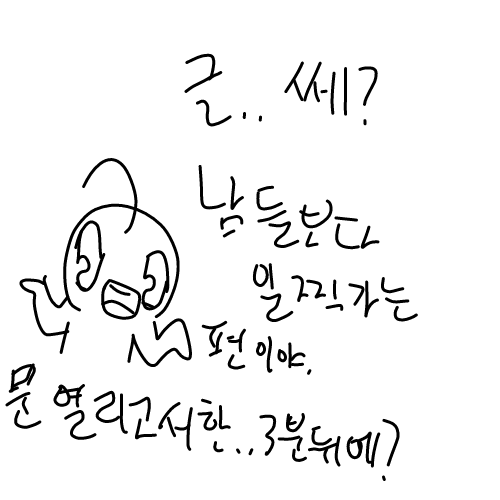 글.. 쎄?
남들보다
일찍가는
편이야.
문 열리고서한..3분뒤에?